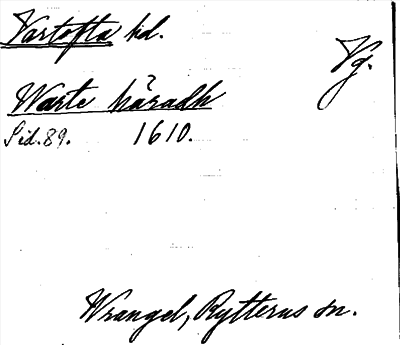 Vartofta hd.
Vg.
Warte häradh
Sid. 89. 1610.
Wrangel, Rytterus sn.